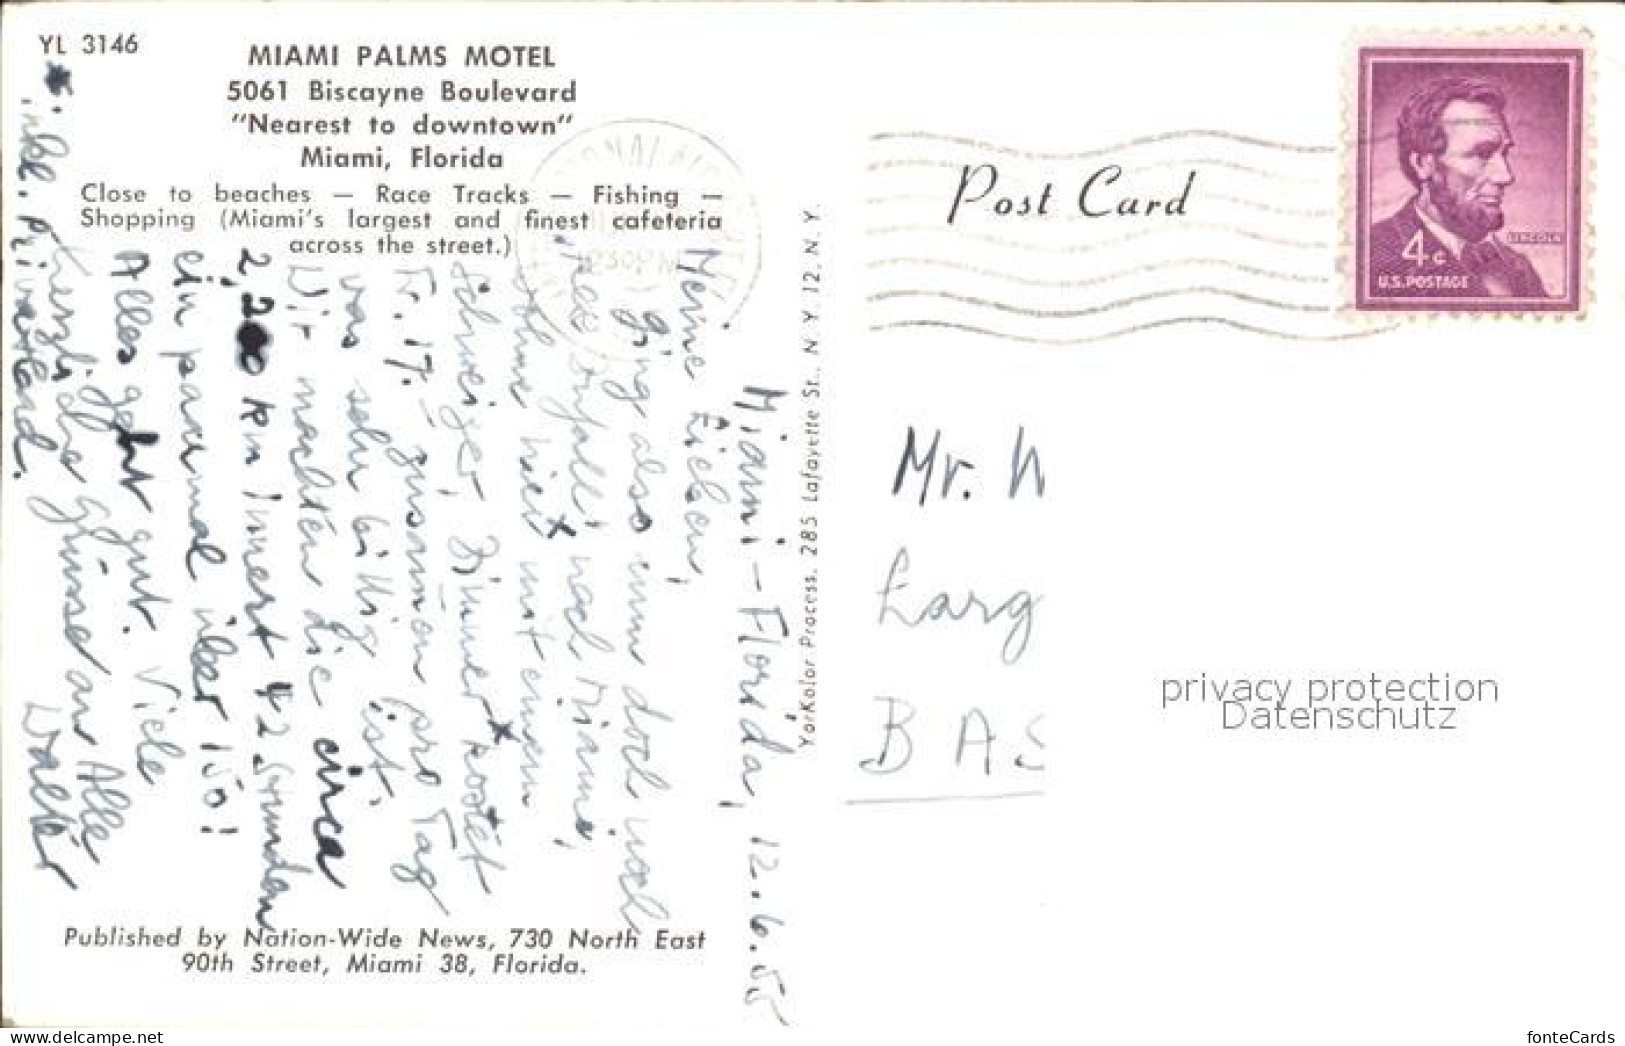 YL 3146
MIAMI PALMS MOTEL
5061 Biscayne Boulevard
"Nearest to downtown"
Miami, Florida
Close to beaches — Race Tracks — Fishing —
Shopping (Miami's largest and finest cafeteria
across the street.)
Miami-Florida, 12.6.55
Meine Lieben,
ging also nun doch noch
nach Miami,
wohne hier mit einem
Schweizer, Zimmer kostet
Fr. 17.- zusammen pro Tag
was sehr billig ist.
Wir machten die circa
2,200 km innert 42 Stunden
ein paarmal über 150!
Alles geht gut. Viele
herzliche Grüsse an Alle
Walter
inkl. Privatbad.
Published by Nation-Wide News, 730 North East
90th Street, Miami 38, Florida.
YorKolor Process, 285 Lafayette St., N. Y. 12, N. Y.
Post Card
LINCOLN
4c
U.S. POSTAGE
Mr.
Larg
BAS
privacy protection
Datenschutz
delcampe.net
fonteCards